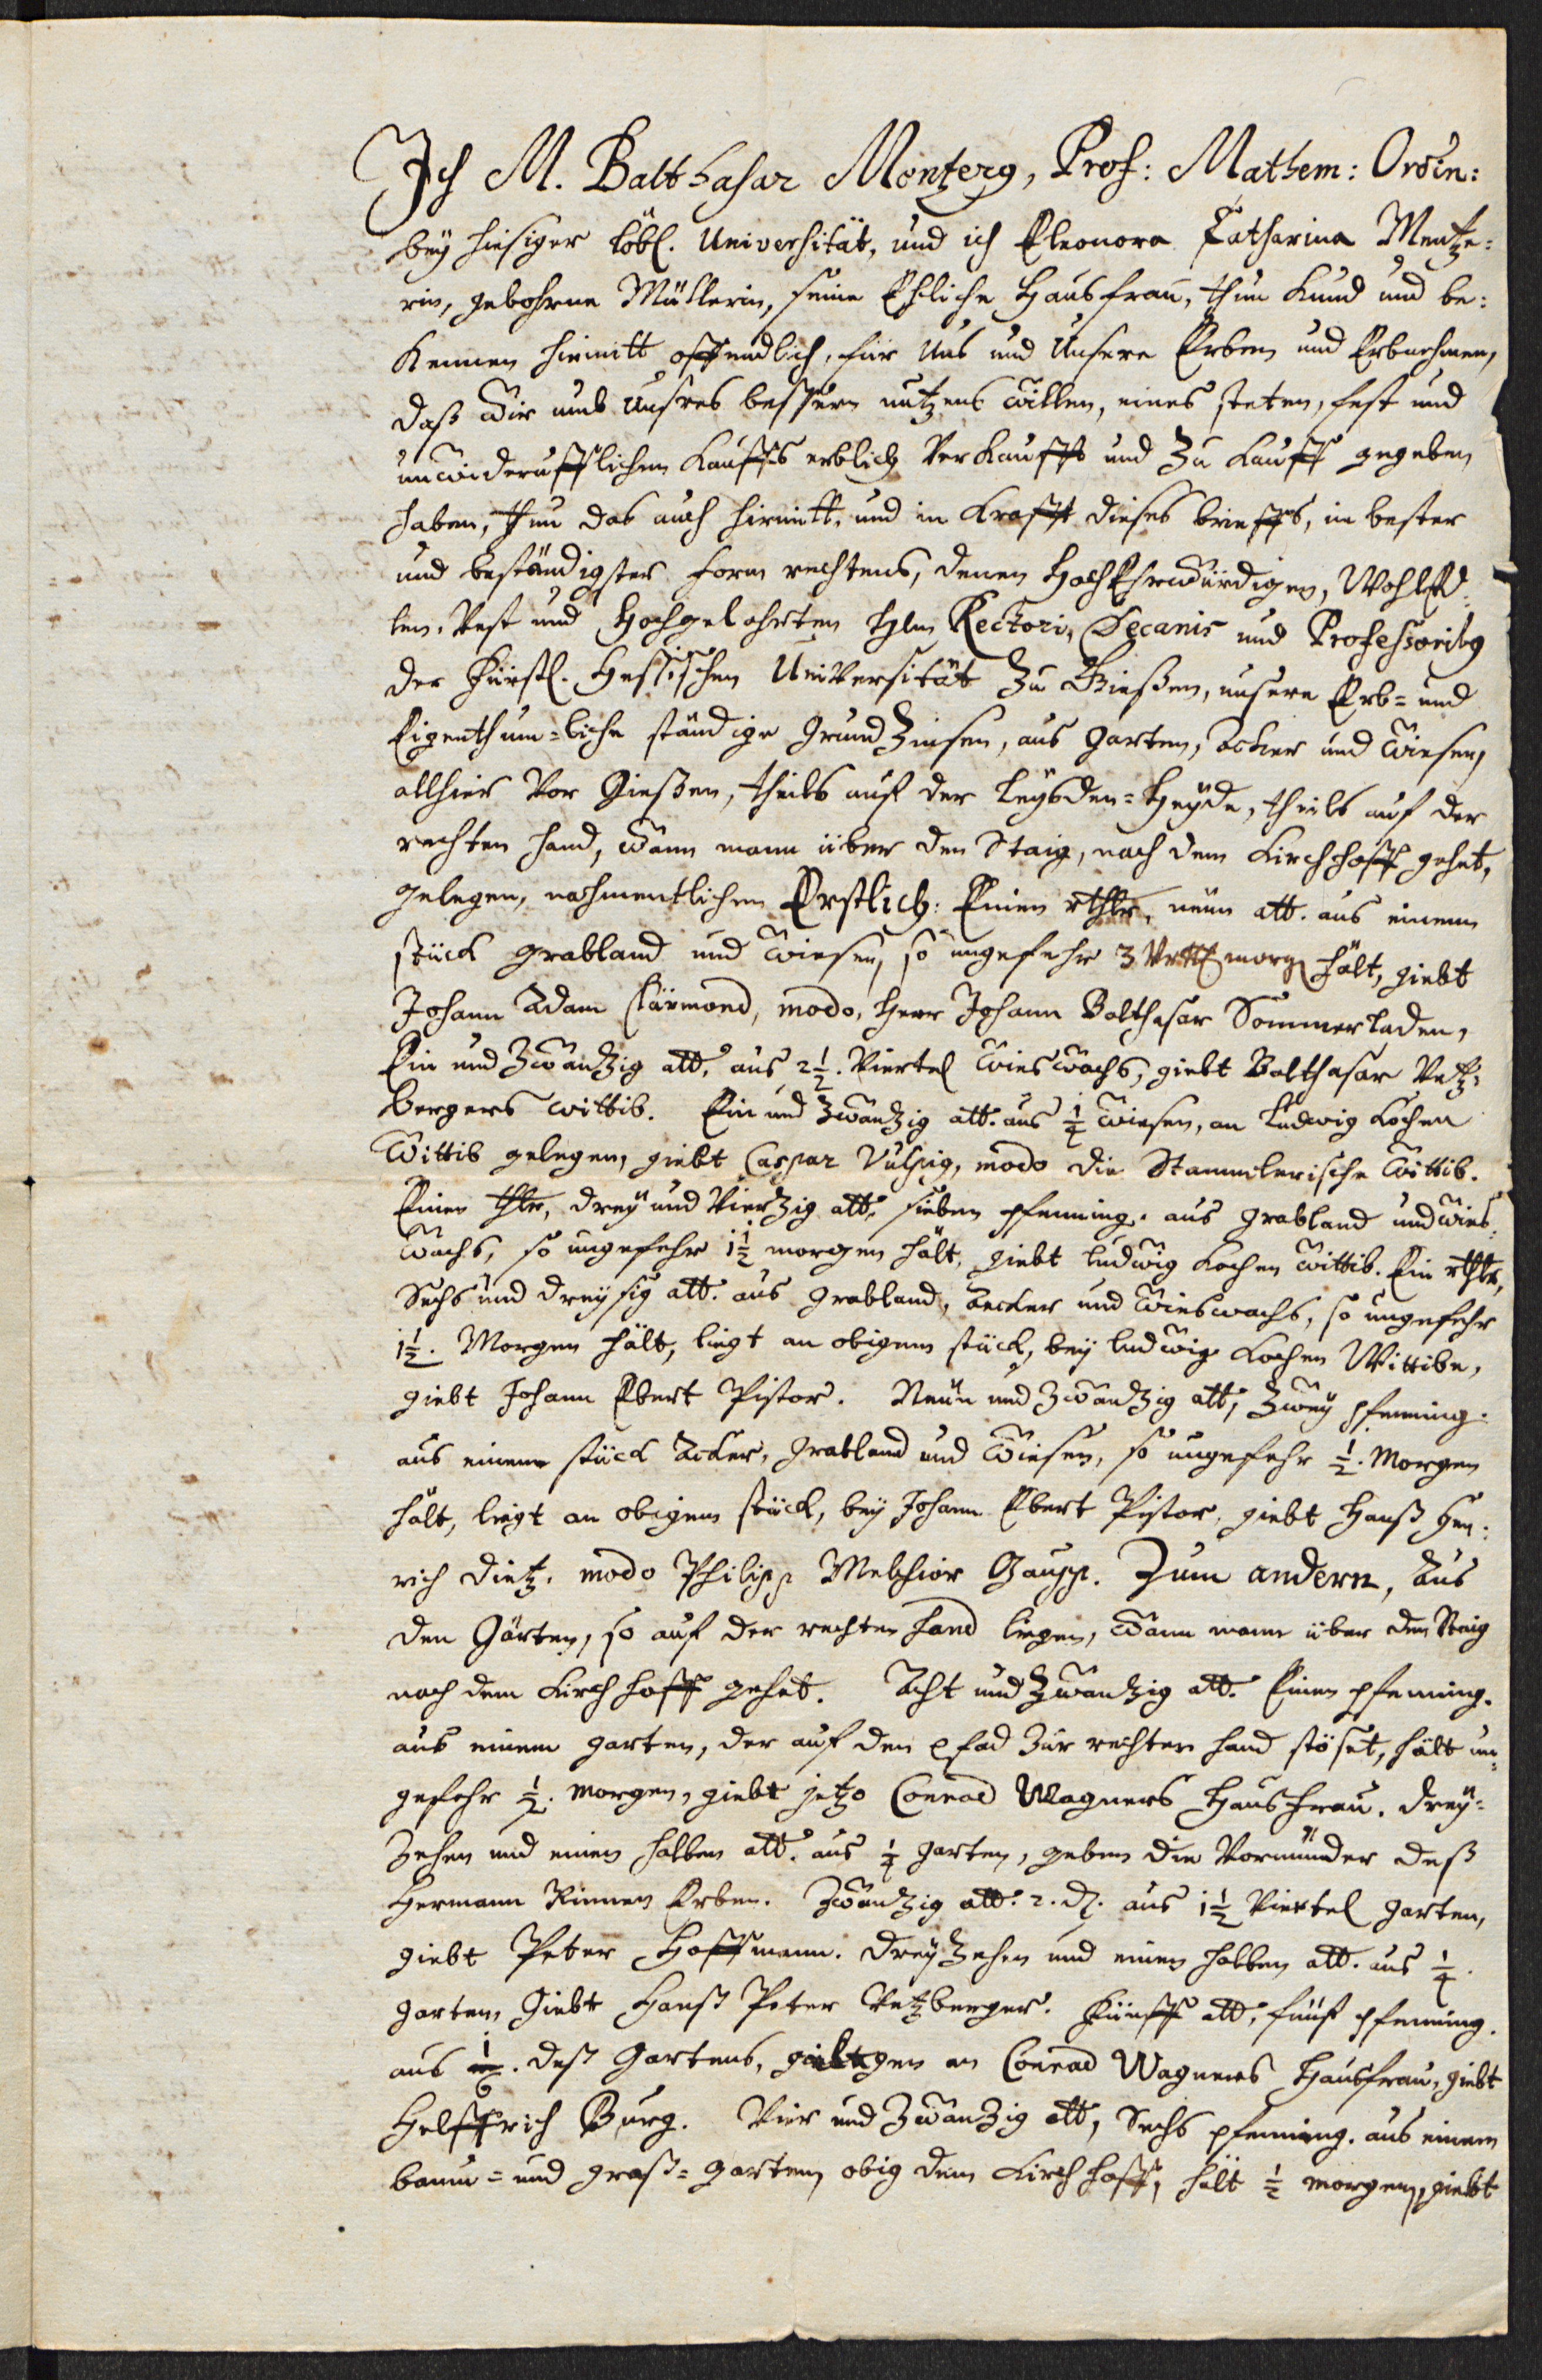 Ich M. Balthasar Mentzerg, Prof: Mathem: Ordin:
bey hiesiger löbl. Universität, und ich Eleonora Catharina Mentze:
rin, gebohrne Müllerin, seine Ehliche Hausfrau, thun Kund und be:
Kennen hiemitt offendlich, für Uns und Unsere Erben und Erbnehmen,
daß wir umb Unsres bessern nutzens willen, eines steten, fest und
unwiderufflichen Kauffs erblich Verkaufft und Zu Kauff gegeben
haben, thun das auch hiemitt, und in Krafft dieses brieffs, in bester
und beständigster form rechtens, denen HochEhrwürdigen, WohlEd:
len, Vest und Hochgelahrten Hln Rectori, Decanis und Professoribg
der Fürstl. Hessischen Universität Zu Gießen, unsere Erb= und
Eigenthum=liche ständige GrundZinsen, aus Garten, äcker und Wiesen,
allhier Vor Gießen, theils auf der Leysden=Heyde, theils auf der
rechten hand, wann mann über den Staig, nach dem Kirchhoff gehet,
gelegen, nahmentlichen Erstlich: Einen rthlr, neun alb. aus einem
stück grabland und Wiesen, so ungefehr 3 Vrtl morg hält, giebt
Johann Adam Clärmond, modo, Herr Johann Balthasar Sommerladen,
Ein und Zwantzig alb. aus 2½. Viertel Wieswachs, giebt Balthasar Vetz:
bergers wittib. Ein und Zwantzig alb. aus ¼ Wiesen, an Ludwig Kochen
Wittib gelegen, giebt Caspar Vulpig, modo die Stammlerische Wittib.
Einen thlr, drey und Viertzig alb. sieben pfenning. aus grabland und wies:
wachs, so ungefehr 1½ morgen hält, giebt Ludwig Kochen Wittib. Ein rthlr,
Sechs und dreysig alb. aus grabland, äecker und Wieswachs, so ungefehr
1½. Morgen hält, liegt an obigem stück, bey Ludwig Kochen Wittibe,
giebt Johann Ebert Pistor. Neun und Zwantzig alb, Zwey pfenning.
aus einem stück Acker, grabland und Wiesen, so ungefehr ½. Morgen
hält, liegt an obigem stück, bey Johann Ebert Pistor, giebt Hanß Hen:
rich Dietz. modo Philipp Melchior Gaupp. Zum andern, aus
den Gärten, so auf der rechten hand liegen, wann mann über den Staig
nach dem Kirchhoff gehet. Acht und Zwantzig alb. Einen pfenning.
aus einem garten, der auf den pfad Zur rechten hand stöset, hält un:
gefehr ½. morgen, giebt jetzo Conrad Wagners Hausfrau. drey=
Zehen und einen halben alb. aus ¼ garten, geben die Vormünder deß
Hermann Rinnen Erben. Zwantzig alb. 2. d. aus 1½ Viertel garten,
giebt Peter Hoffmann. dreyZehen und einen halben alb. aus ¼.
garten Giebt Hanß Peter Vetzberger. Fünff alb, fünf pfenning.
aus deß Gartens, gelegen an Conrad Wagners Hausfrau, giebt
Helffrich Burg. Vier und Zwantzig alb, Sechs pfenning. aus einem
baum= und graß= garten, obig dem Kirchhoff, hält ½ morgen, giebt